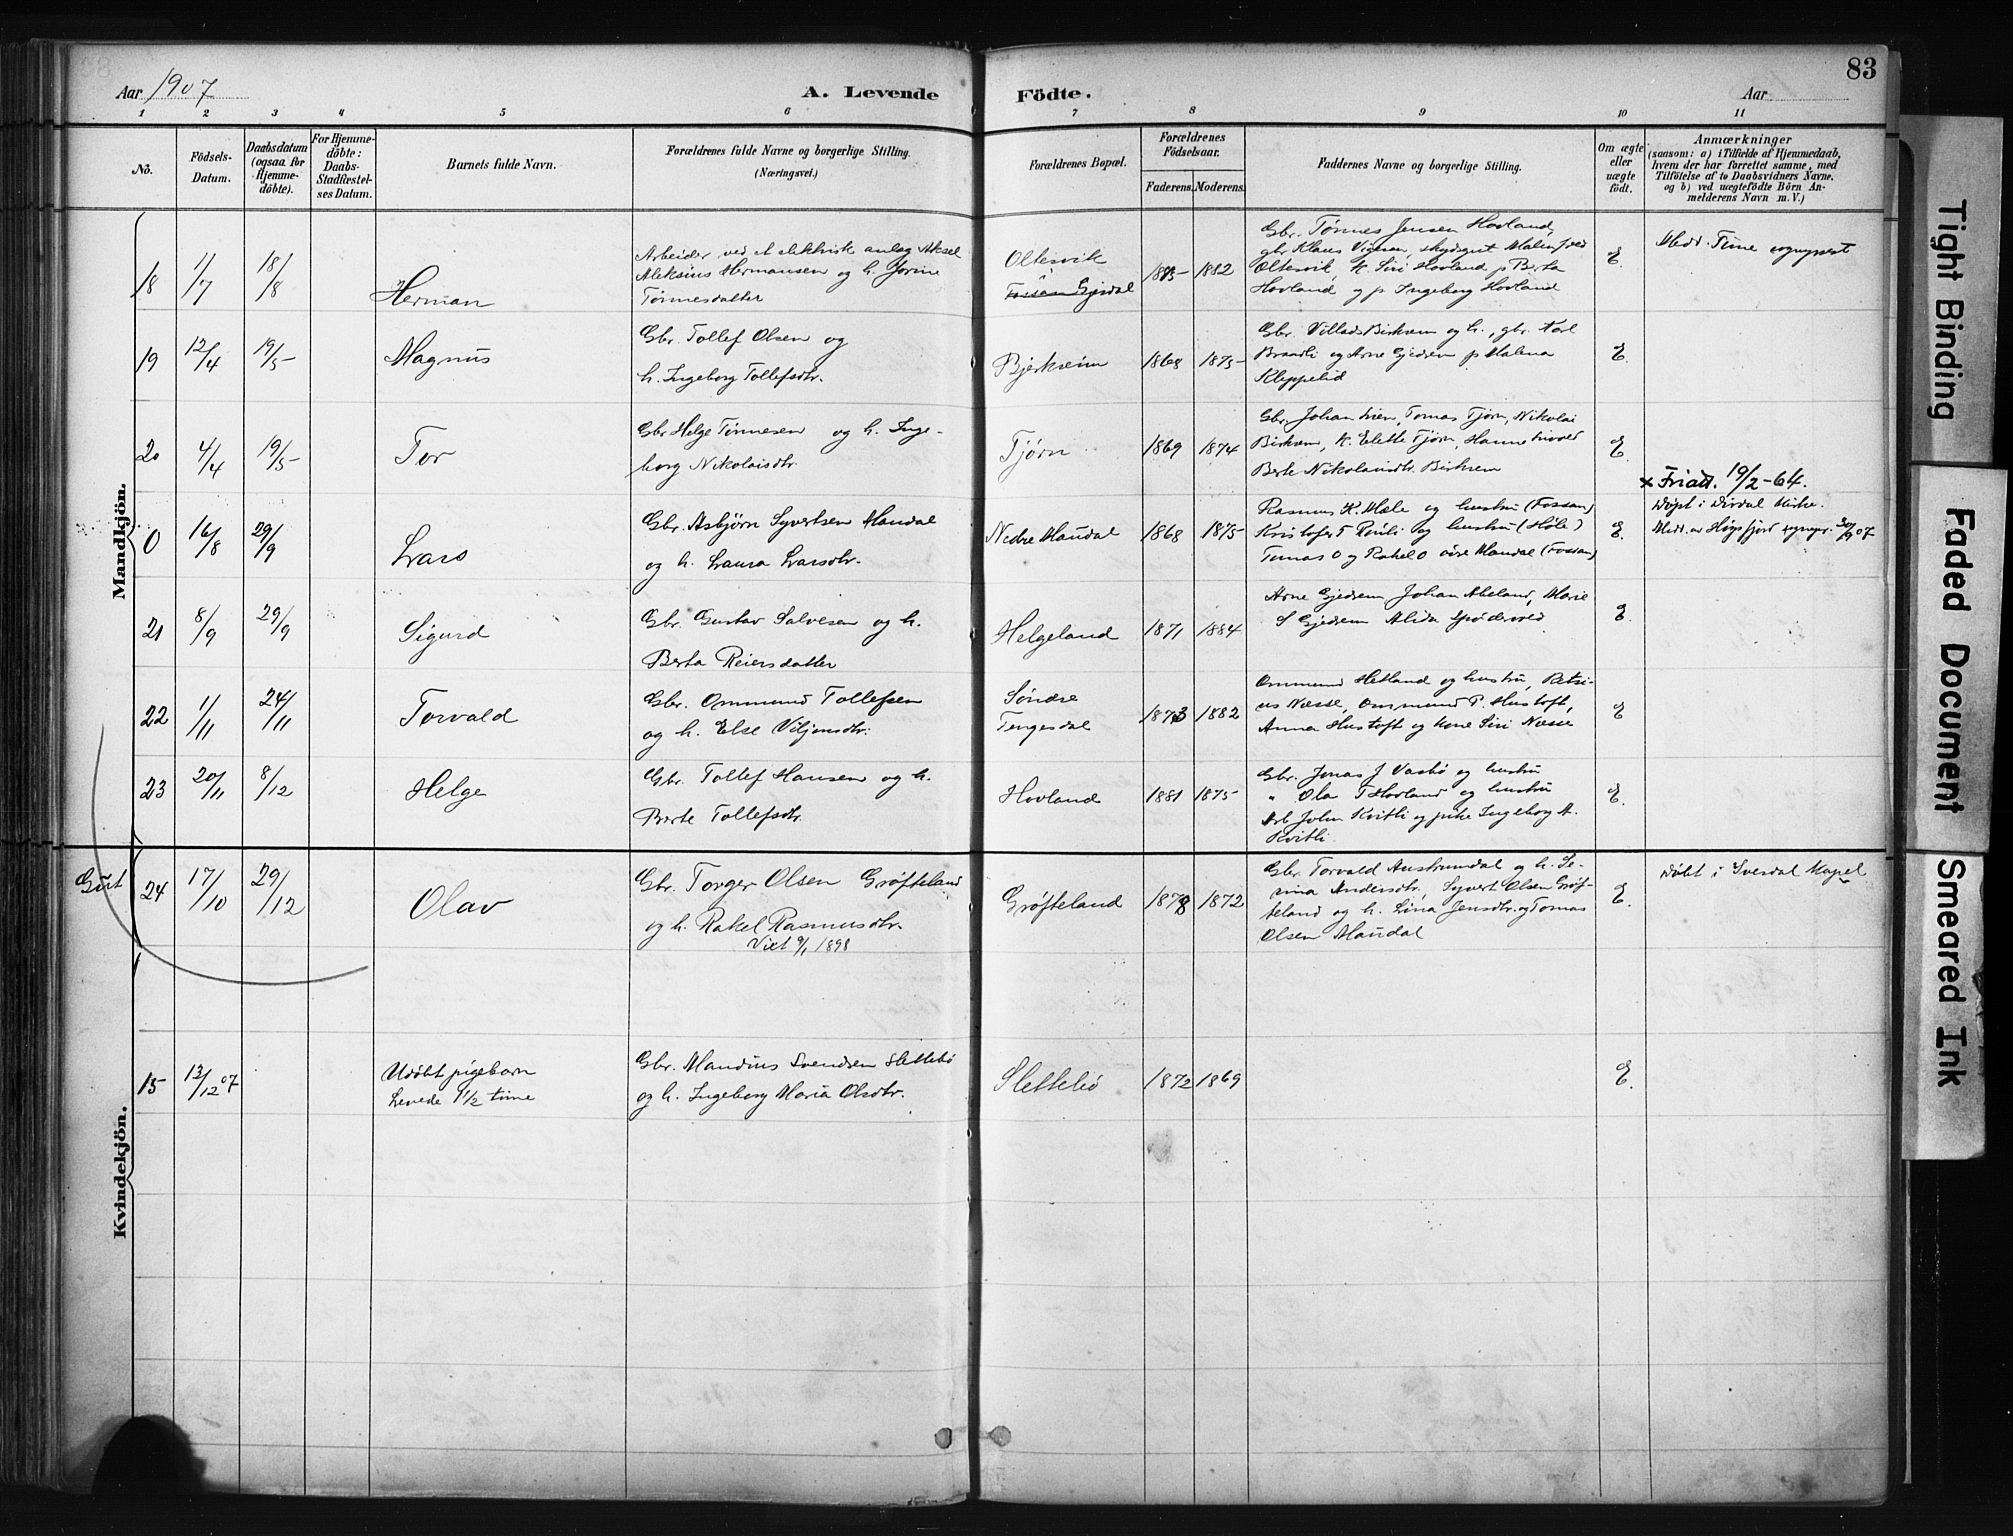 83
Aar 1907
A. Levende
Födte.
Aar
1 2 3 4 5 6 7 8 9 10 11
No.
Födsels-
Datum.
Daabsdatum
(ogsaa for
Hjemme-
döbte).
For Hjemme-
döbte:
Daabs-
Stadfæstel-
ses Datum.
Barnets fulde Navn.
Forældrenes fulde Navne og borgerlige Stilling.
(Næringsvei.)
Forældrenes Bopæl.
Forældrenes
Födselsaar.
Faderens.
Moderens.
Faddernes Navne og borgerlige Stilling.
Om ægte
eller
uægte
födt.
Anmærkninger
(saasom: a) i Tilfælde af Hjemmedaab,
hvem der har forrettet samme, med
Tilföielse af to Daabsvidners Navne,
og b) ved uægtefödte Börn An-
melderens Navn m. V.)
Mandkjön.
18 1/7 18/8 Herman
Arbeider ved et elektrisk anlæg Aksel
Aleksius Hermansen og h. Jorine
Tønnesdatter
Oltesvik
Gjesdal
1882
Gbr. Tønnes Jensen Hovland,
gbr Klaus Vigesen, skydsgut Malenfred
Oltesvik, k. Siri Hovland p Berta
Hovland og p. Ingeborg Hovland
E.
Medd. Time sogneprest
19 12/4 19/5 Magnus
Gbr. Tollef Olsen og
h. Ingeborg Tollefsdtr.
Bjerkreim
1868 1875
Gbr. Villads Birkrem og h., gbr. Karl
Braadli og Arne Gjedrem p Malena
Kleppelid
E.
20 4/4 19/5 Tor
Gbr Helge Tønnesen og h. Inge-
borg Nikolaisdtr.
Tjørn
1869 1874
Gbr. Johan Lien, Tomas Tjørn, Nikolai
Birkrem, K. Elette Tjørn, Hanne
Berte Nikolaisdtr. Birkrem
E.
x Friatt. 19/2-64.
0 16/8 29/9 Lars
Gbr. Asbjørn Syvertsen Maudal
og h. Laura Larsdtr.
Nedre Maudal
1868 1875
Rasmus K. Mæle og hustru (Fossan)
Kristofer T og hustru (Høle)
Tomas O og Rakel O øvre Maudal (Fossan)
E.
Døpt i Dirdal Kirke.
Medd. av Høgsfjord sognepr. 30/9 07
21 8/9 29/9 Sigurd
Gbr. Gustav Salvesen og h.
Berta Reiersdatter
Helgeland
1871 1884
Arne Gjedrem Johan Apeland, Marie
S Gjedrem Alida
E.
22 1/11 24/11 Torvald
Gbr. Ommund Tollefsen
og h. Else Viljensdtr.
Søndre
Tengesdal
1873 1882
Ommund Hetland og hustru, Retsi-
us Nesse, Ommund P. Hustoft,
Anna Hustoft og kone Siri Nesse
E
23 20/11 8/12 Helge
Gbr. Tollef Hansen og h.
Berte Tollefsdtr.
Hovland
1881 1875
Gbr. Jonas J Vasbø og hustru
" Ola T Hovland og hustru
Arb John Kvitli og pike Ingeborg A.
Kvitli.
E.
Gut
24 17/10 29/12 Olav
Gbr. Torger Olsen Grøfteland
og h. Rakel Rasmusdtr.
Viet 9/1 1898
Grøfteland
1878 1872
Gbr. Torvald Austrumdal og h. Se-
rina Andersdtr, Syvert Olsen Grøf-
teland og h. Lina Jensdtr. og Tomas
Olsen Maudal
E.
Døbt i Svesdal Kapel
Kvindekjön.
15 13/12 07
Udøbt pigebarn
Levede 1 1/2 time
Gbr. Mandius Svendsen Slettebø
og h. Ingeborg Maria Olsdtr.
Slettebø
1872 1869
E.
Tight Binding
Faded Document
Smeared Ink